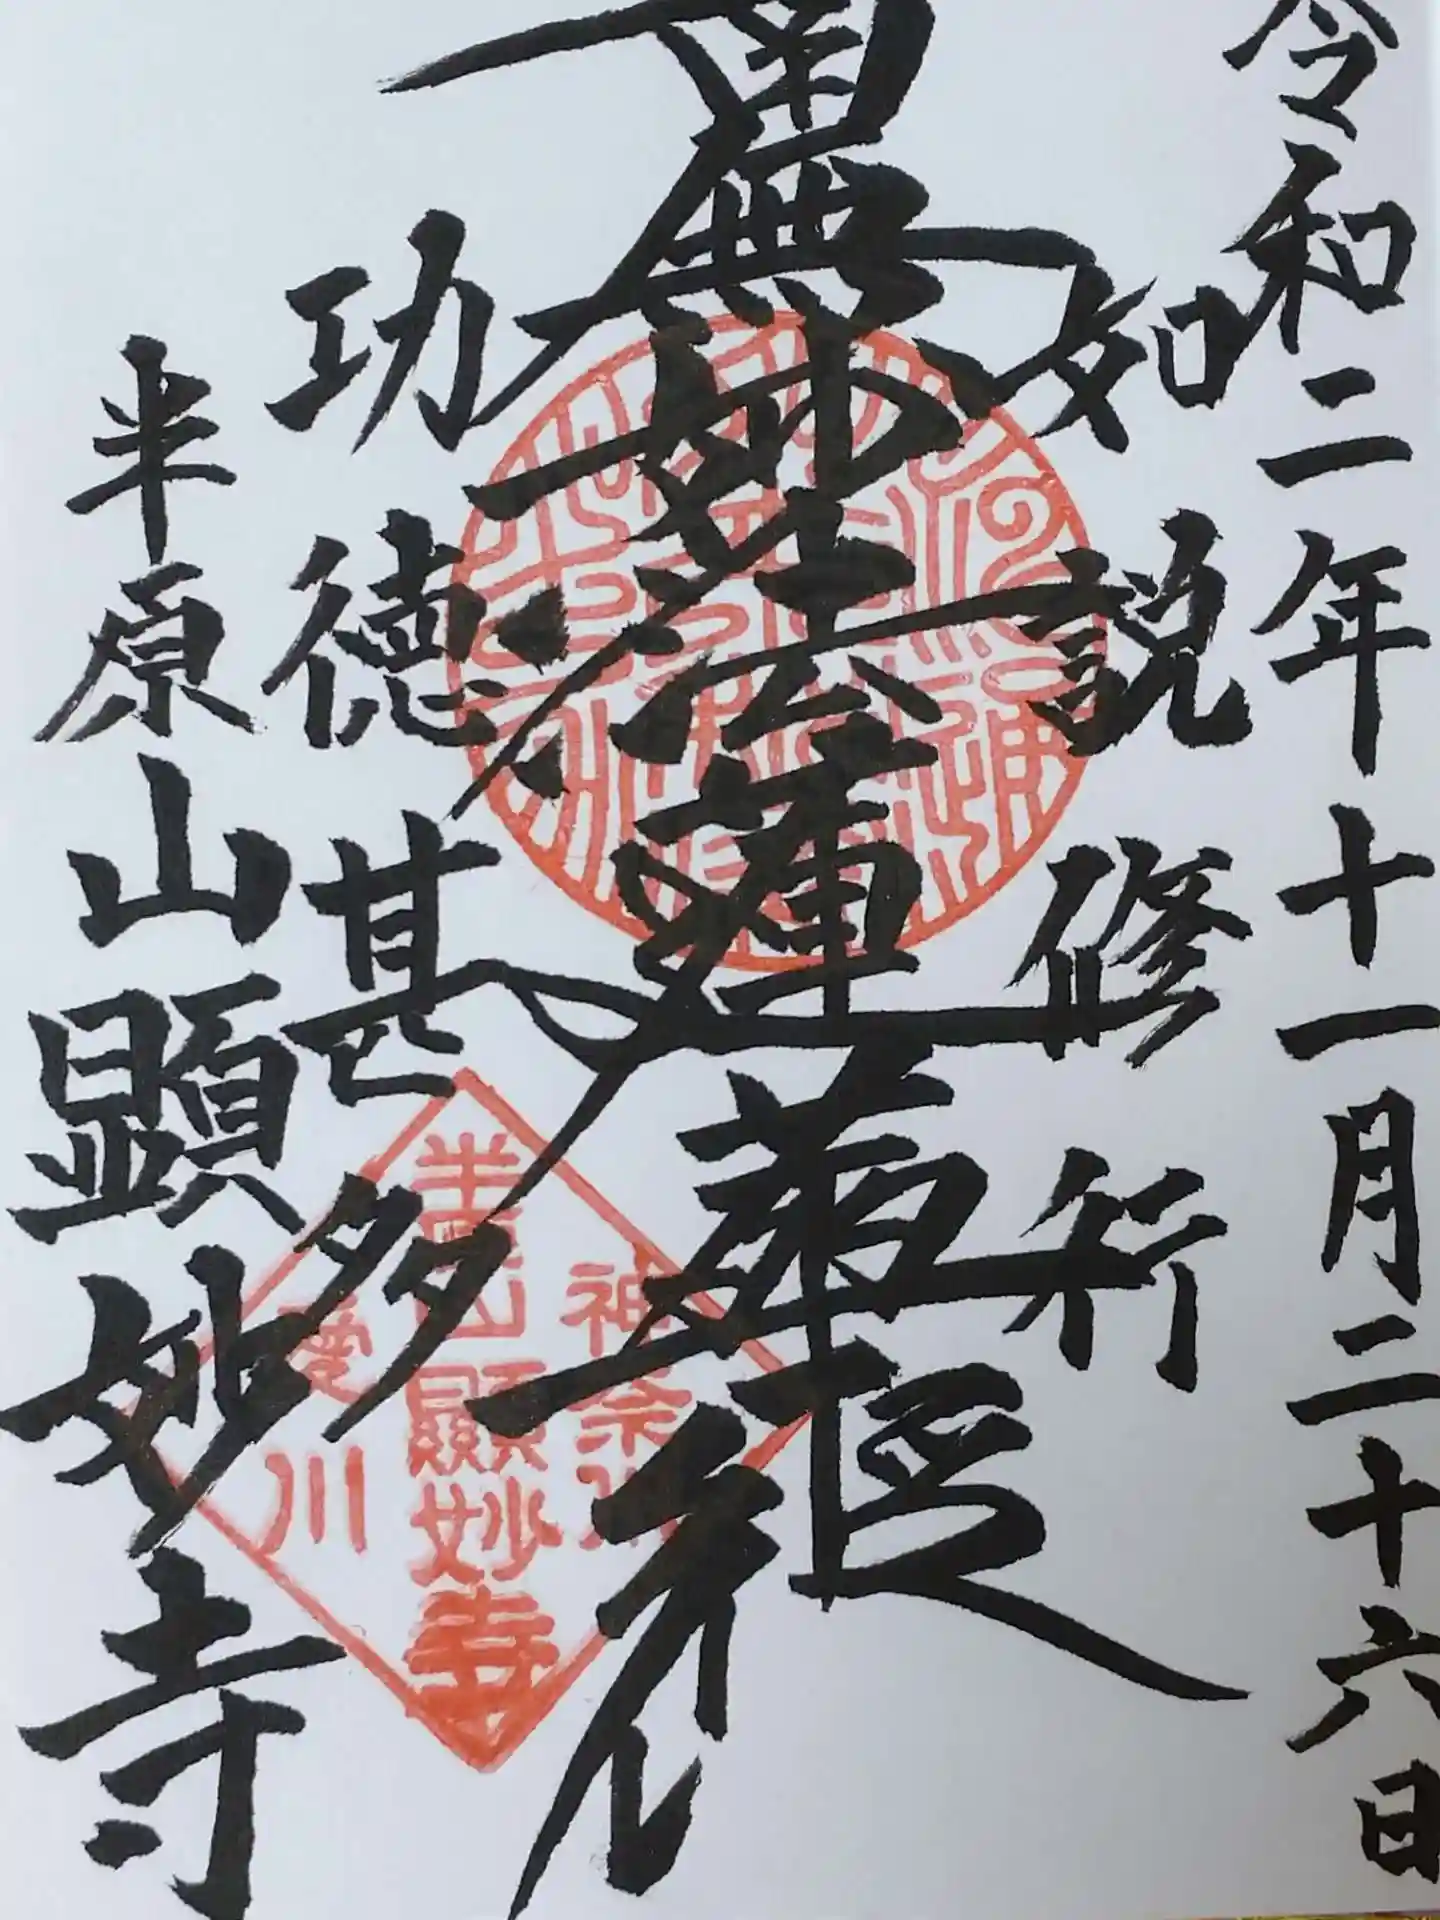 令和二年十一月二十六日
如説修行
南無妙法蓮華経
功徳甚多
半原山顕妙寺
神奈川
半原山顯妙寺
愛川